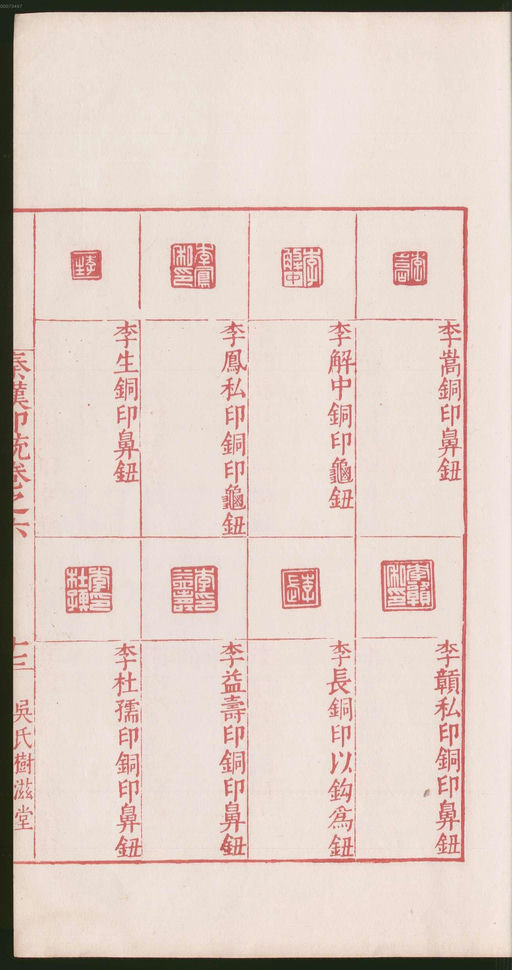 李嵩銅印鼻鈕
李解中銅印龜鈕
李鳳私印銅印龜鈕
李生銅印鼻鈕
李贛私印銅印鼻鈕
李長銅印以鈎爲鈕
李益壽印銅印鼻鈕
李杜孺印銅印鼻鈕
秦漢印統卷之六
吳氏樹滋堂
00073497